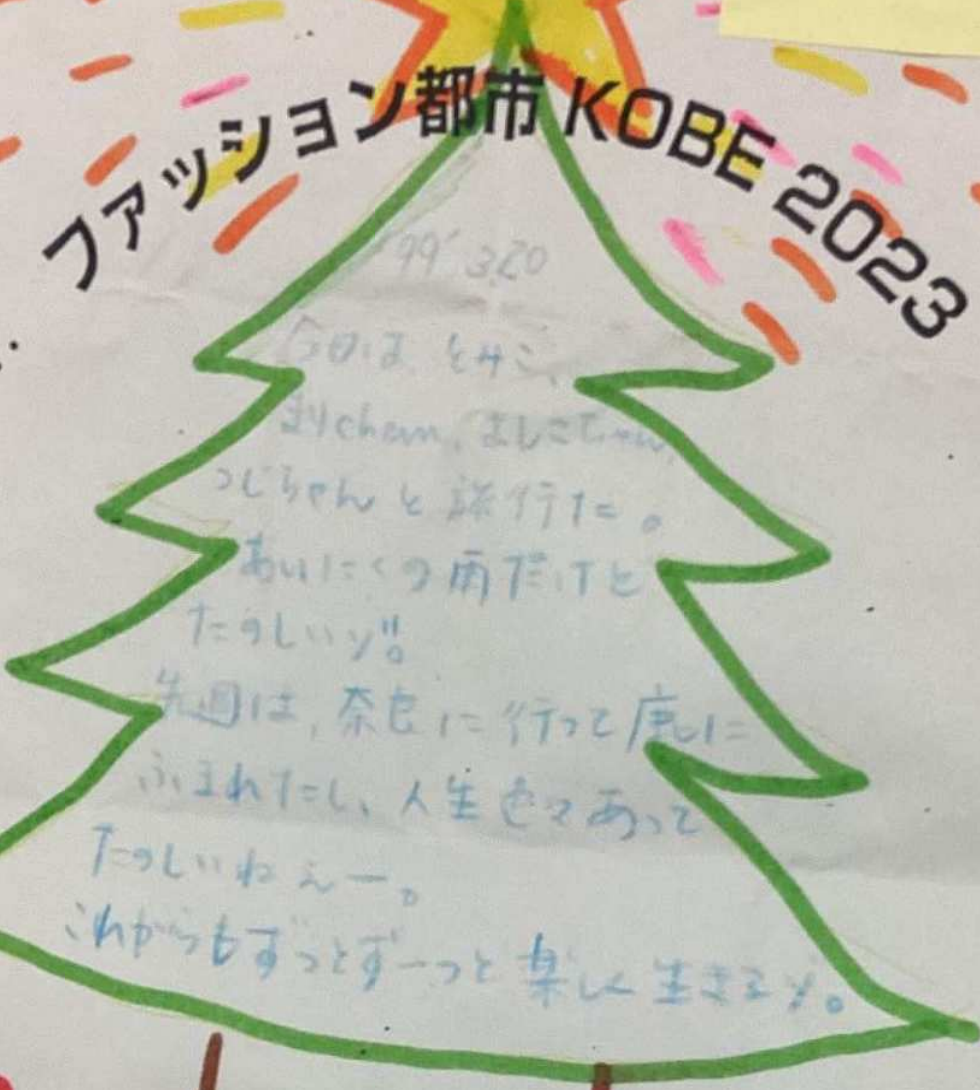 ファッション都市 KOBE 2023
'99' 3.20
今日は とみこ、
まりchan, よしこちゃん,
つじちゃんと 行た。
あいにくの雨だけど
たのしいソ!!
先週は, 奈良に行って鹿に
ふまれたし、人生色々あって
たのしいねぇー。
これからもずっとずーっと楽しく生きるソ。